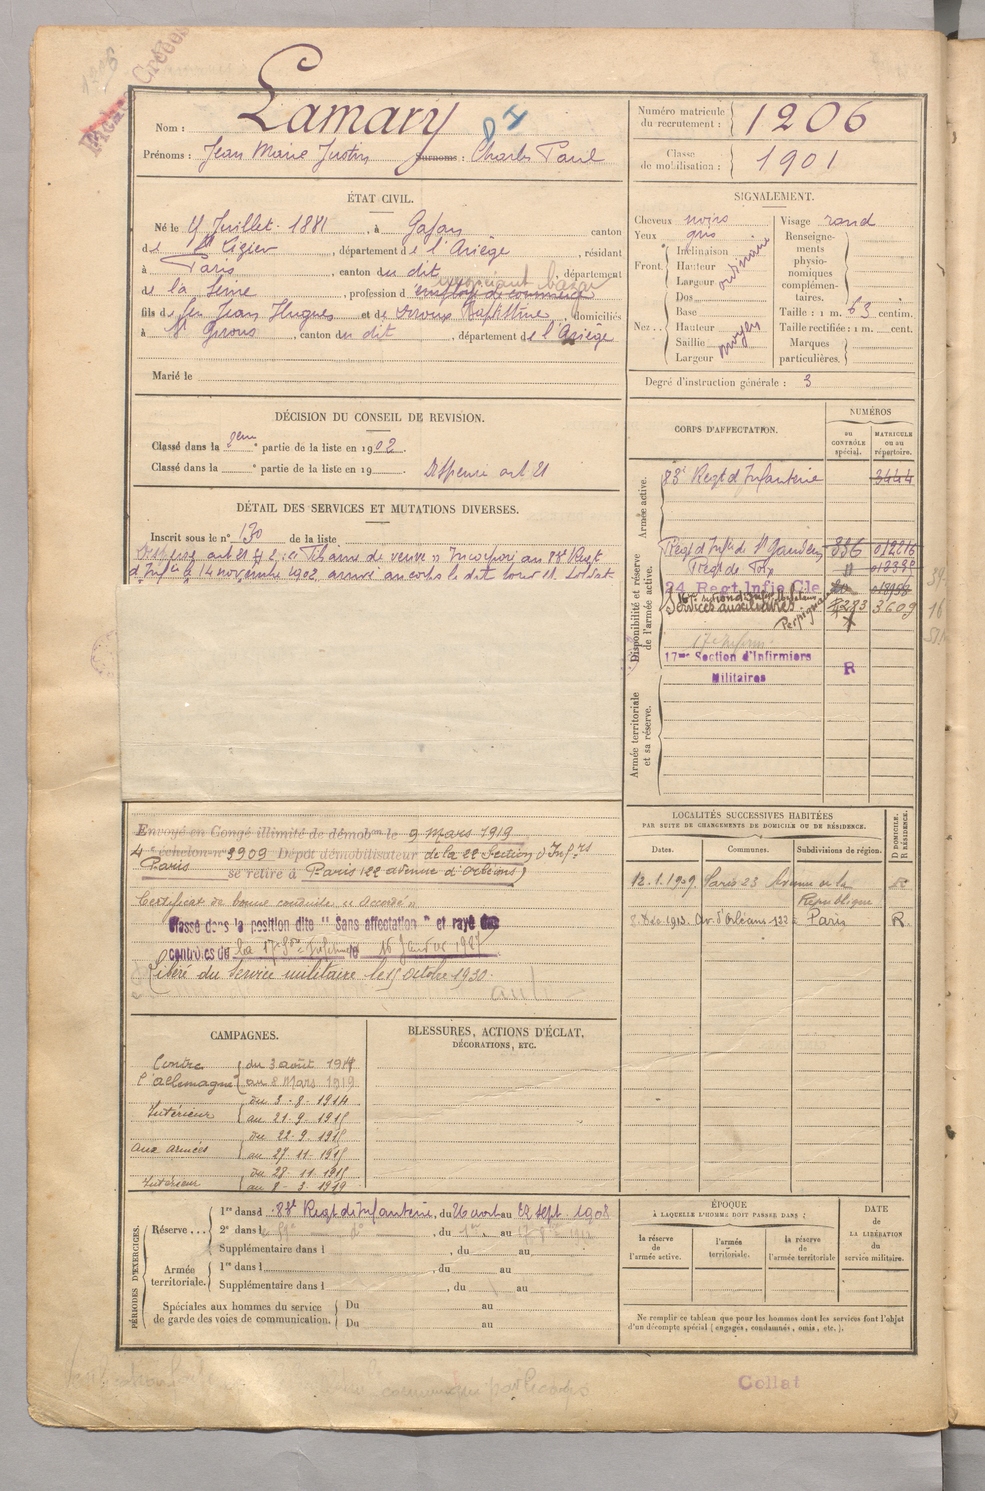 1206
Nom : Lamary
Prénoms : Jean Marie Justin Surnoms : Charles Paul
Numéro matricule du recrutement : 1206
Classe de mobilisation : 1901
ÉTAT CIVIL.
Né le 4 Juillet 1881, à Gajan canton
de St Lizier, département de l'Ariège, résidant
à Paris, canton du dit, département
de la Seine, profession d'employé de commerce
fils de feu Jean Hugues et de Baptistine, domiciliés
à St Girons, canton du dit, département de l'Ariège
Marié le
SIGNALEMENT.
Cheveux noirs
Yeux gris
Front. Inclinaison
Hauteur ordinaire
Largeur
Nez.. Dos
Base
Hauteur moyen
Saillie
Largeur
Visage rond
Renseignements physionomiques complémentaires.
Taille : 1 m. 63 centim.
Taille rectifiée : 1 m. cent.
Marques particulières.
Degré d'instruction générale : 3
DÉCISION DU CONSEIL DE REVISION.
Classé dans la partie de la liste en 1902.
Classé dans la partie de la liste en 19 Dispensé art 21
DÉTAIL DES SERVICES ET MUTATIONS DIVERSES.
Inscrit sous le n° 130 de la liste
Dispensé art 21 § 2 : "Fils aîné de veuve" Incorporé au 83e Regt
d'Infie le 14 novembre 1902, arrivé au corps le dit jour et Soldat
CORPS D'AFFECTATION.
NUMÉROS
au CONTRÔLE spécial.
MATRICULE ou au répertoire.
Armée active.
83e Regt d'Infanterie 3444
Disponibilité et réserve de l'armée active.
Regt d'Infie de St Gaudens 336 012216
Regt de Foix "
24 Regt Infie Cle
Services auxiliaires. Perpignan 3609
17me Section d'Infirmiers R
Militaires
Armée territoriale et sa réserve.
Envoyé en Congé illimité de démobon le 9 Mars 1919
4e échelon n° 9909 Dépôt démobilisateur de la 22e Section d'Infrs
Paris se retire à Paris 122 avenue d'Orléans
Certificat de bonne conduite "Accordé"
Classé dans la position dite "Sans affectation" et rayé des
contrôles de la 17e Son le 16 Janvier 1927
Libéré du Service militaire le 15 Octobre 1930.
LOCALITÉS SUCCESSIVES HABITÉES
PAR SUITE DE CHANGEMENTS DE DOMICILE OU DE RÉSIDENCE.
Dates. Communes. Subdivisions de région. D DOMICILE. R RÉSIDENCE.
12.1.1909. Paris 23 Avenue de la République R
8 Déc. 1913. Av. d'Orléans 122 Paris R.
CAMPAGNES.
Contre l'Allemagne du 3 août 1914
au 8 Mars 1919
Intérieur du 3-8-1914
au 21-9-1915
aux armées du 22-9-1915
au 27-11-1915
Intérieur du 28-11-1915
au 8-3-1919
BLESSURES, ACTIONS D'ÉCLAT, DÉCORATIONS, ETC.
PÉRIODES D'EXERCICES.
Réserve... 1re dans l 83e Regt d'Infanterie, du 26 août au 22 sept. 1908
2e dans l , du au
Supplémentaire dans l , du au
Armée territoriale. 1re dans l , du au
Supplémentaire dans l , du au
Spéciales aux hommes du service de garde des voies de communication. Du au
Du au
ÉPOQUE
À LAQUELLE L'HOMME DOIT PASSER DANS :
la réserve de l'armée active.
l'armée territoriale.
la réserve de l'armée territoriale
DATE de LA LIBÉRATION du service militaire.
Ne remplir ce tableau que pour les hommes dont les services font l'objet
d'un décompte spécial (engagés, condamnés, omis, etc.).
Collat